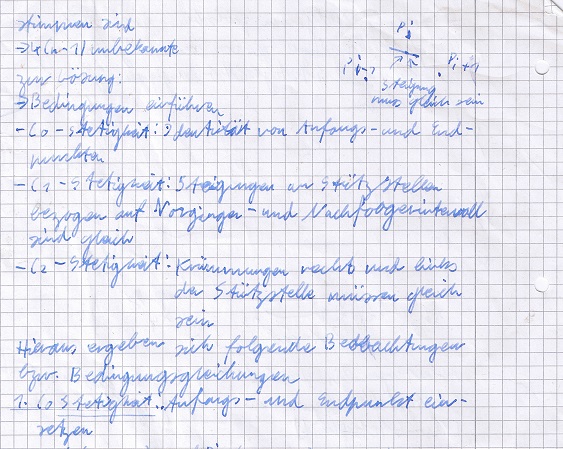 stimmen sind
→ 4(n-1) unbekannte
zur Lösung:
→ Bedingungen einführen
- C0 - Stetigkeit: Identität von Anfangs- und End-
punkten
- C1 - Stetigkeit: Steigungen an Stützstellen
bezogen auf Vorgänger- und Nachfolgerintervall
sind gleich
- C2 - Stetigkeit: Krümmungen recht und links
der Stützstelle müssen gleich
sein
Hieraus ergeben sich folgende Beobachtungen
bzw. Bedingungsgleichungen
1. C0 Stetigkeit: Anfangs- und Endpunkt ein-
setzen
Pi
Pi-1
Pi+1
Steigung
muss gleich sein